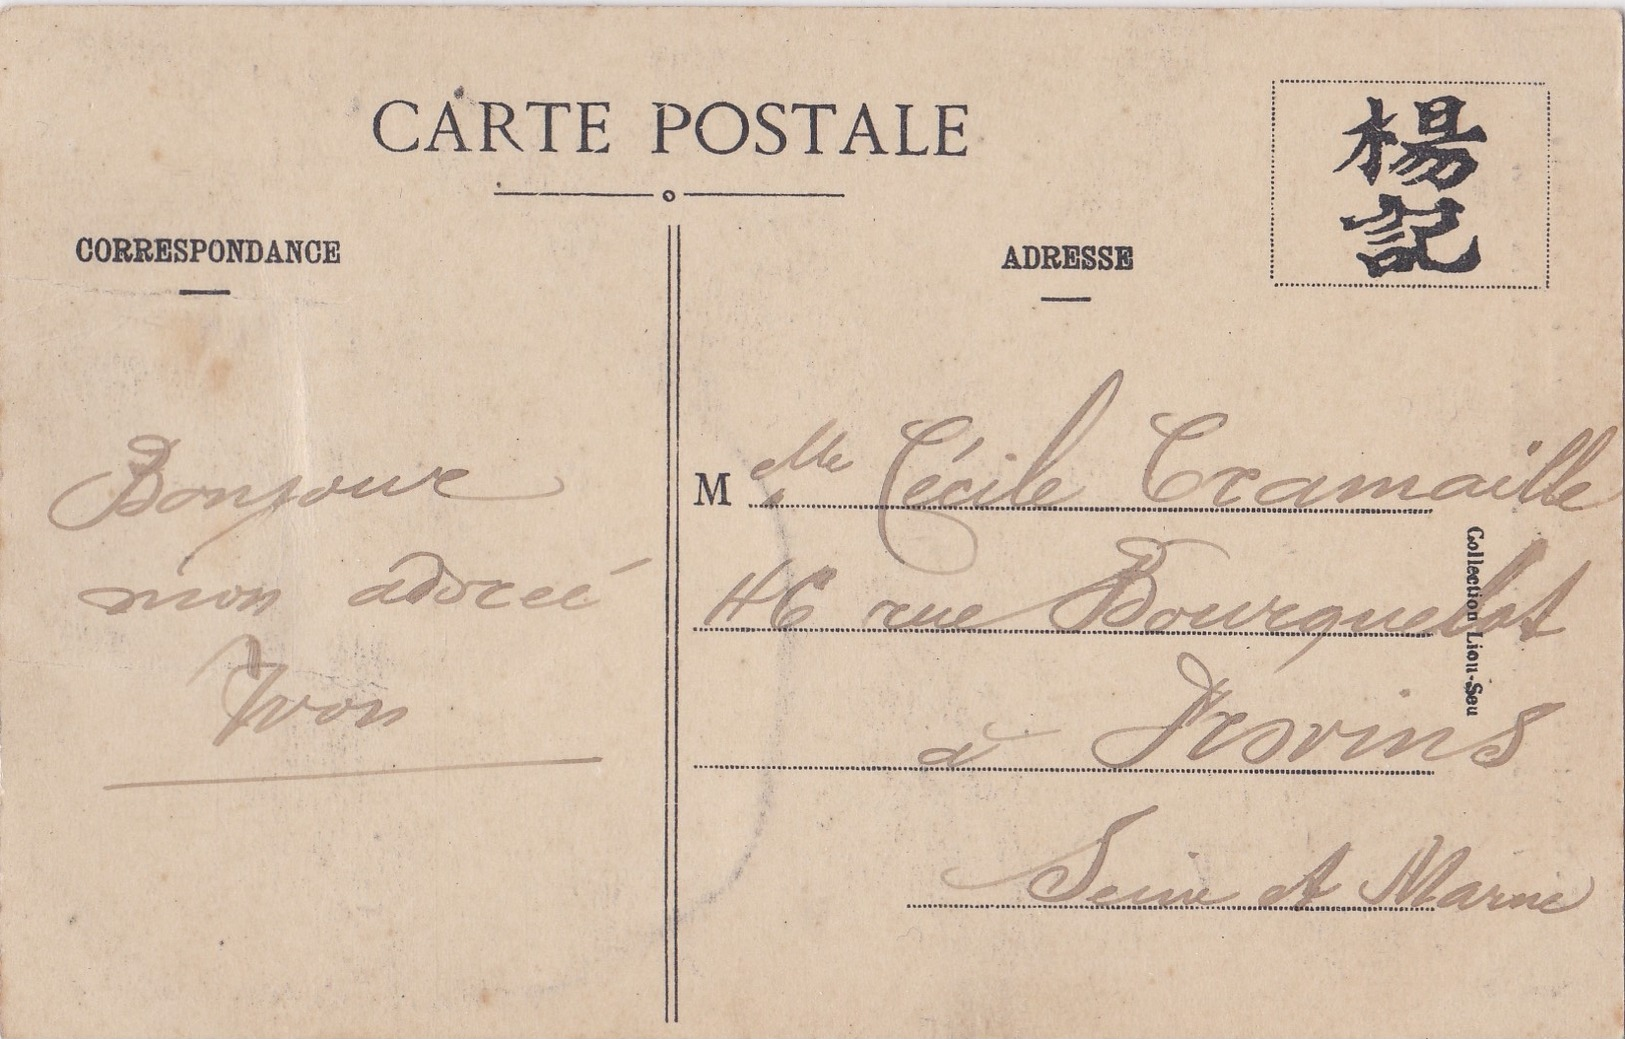 CARTE POSTALE
楊記
CORRESPONDANCE
ADRESSE
Bonjour
mon adoreé
Yvon
Melle Cécile Tramaille
46 rue Bourquelot
à Provins
Seine et Marne
Collection Lion-Seu